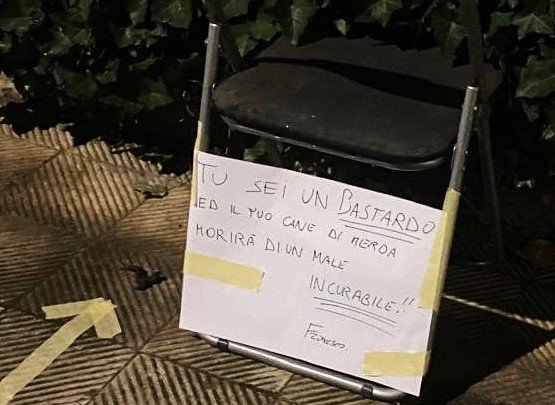 TU SEI UN BASTARDO
ED IL TUO CANE DI MERDA
MORIRÀ DI UN MALE
INCURABILE!!